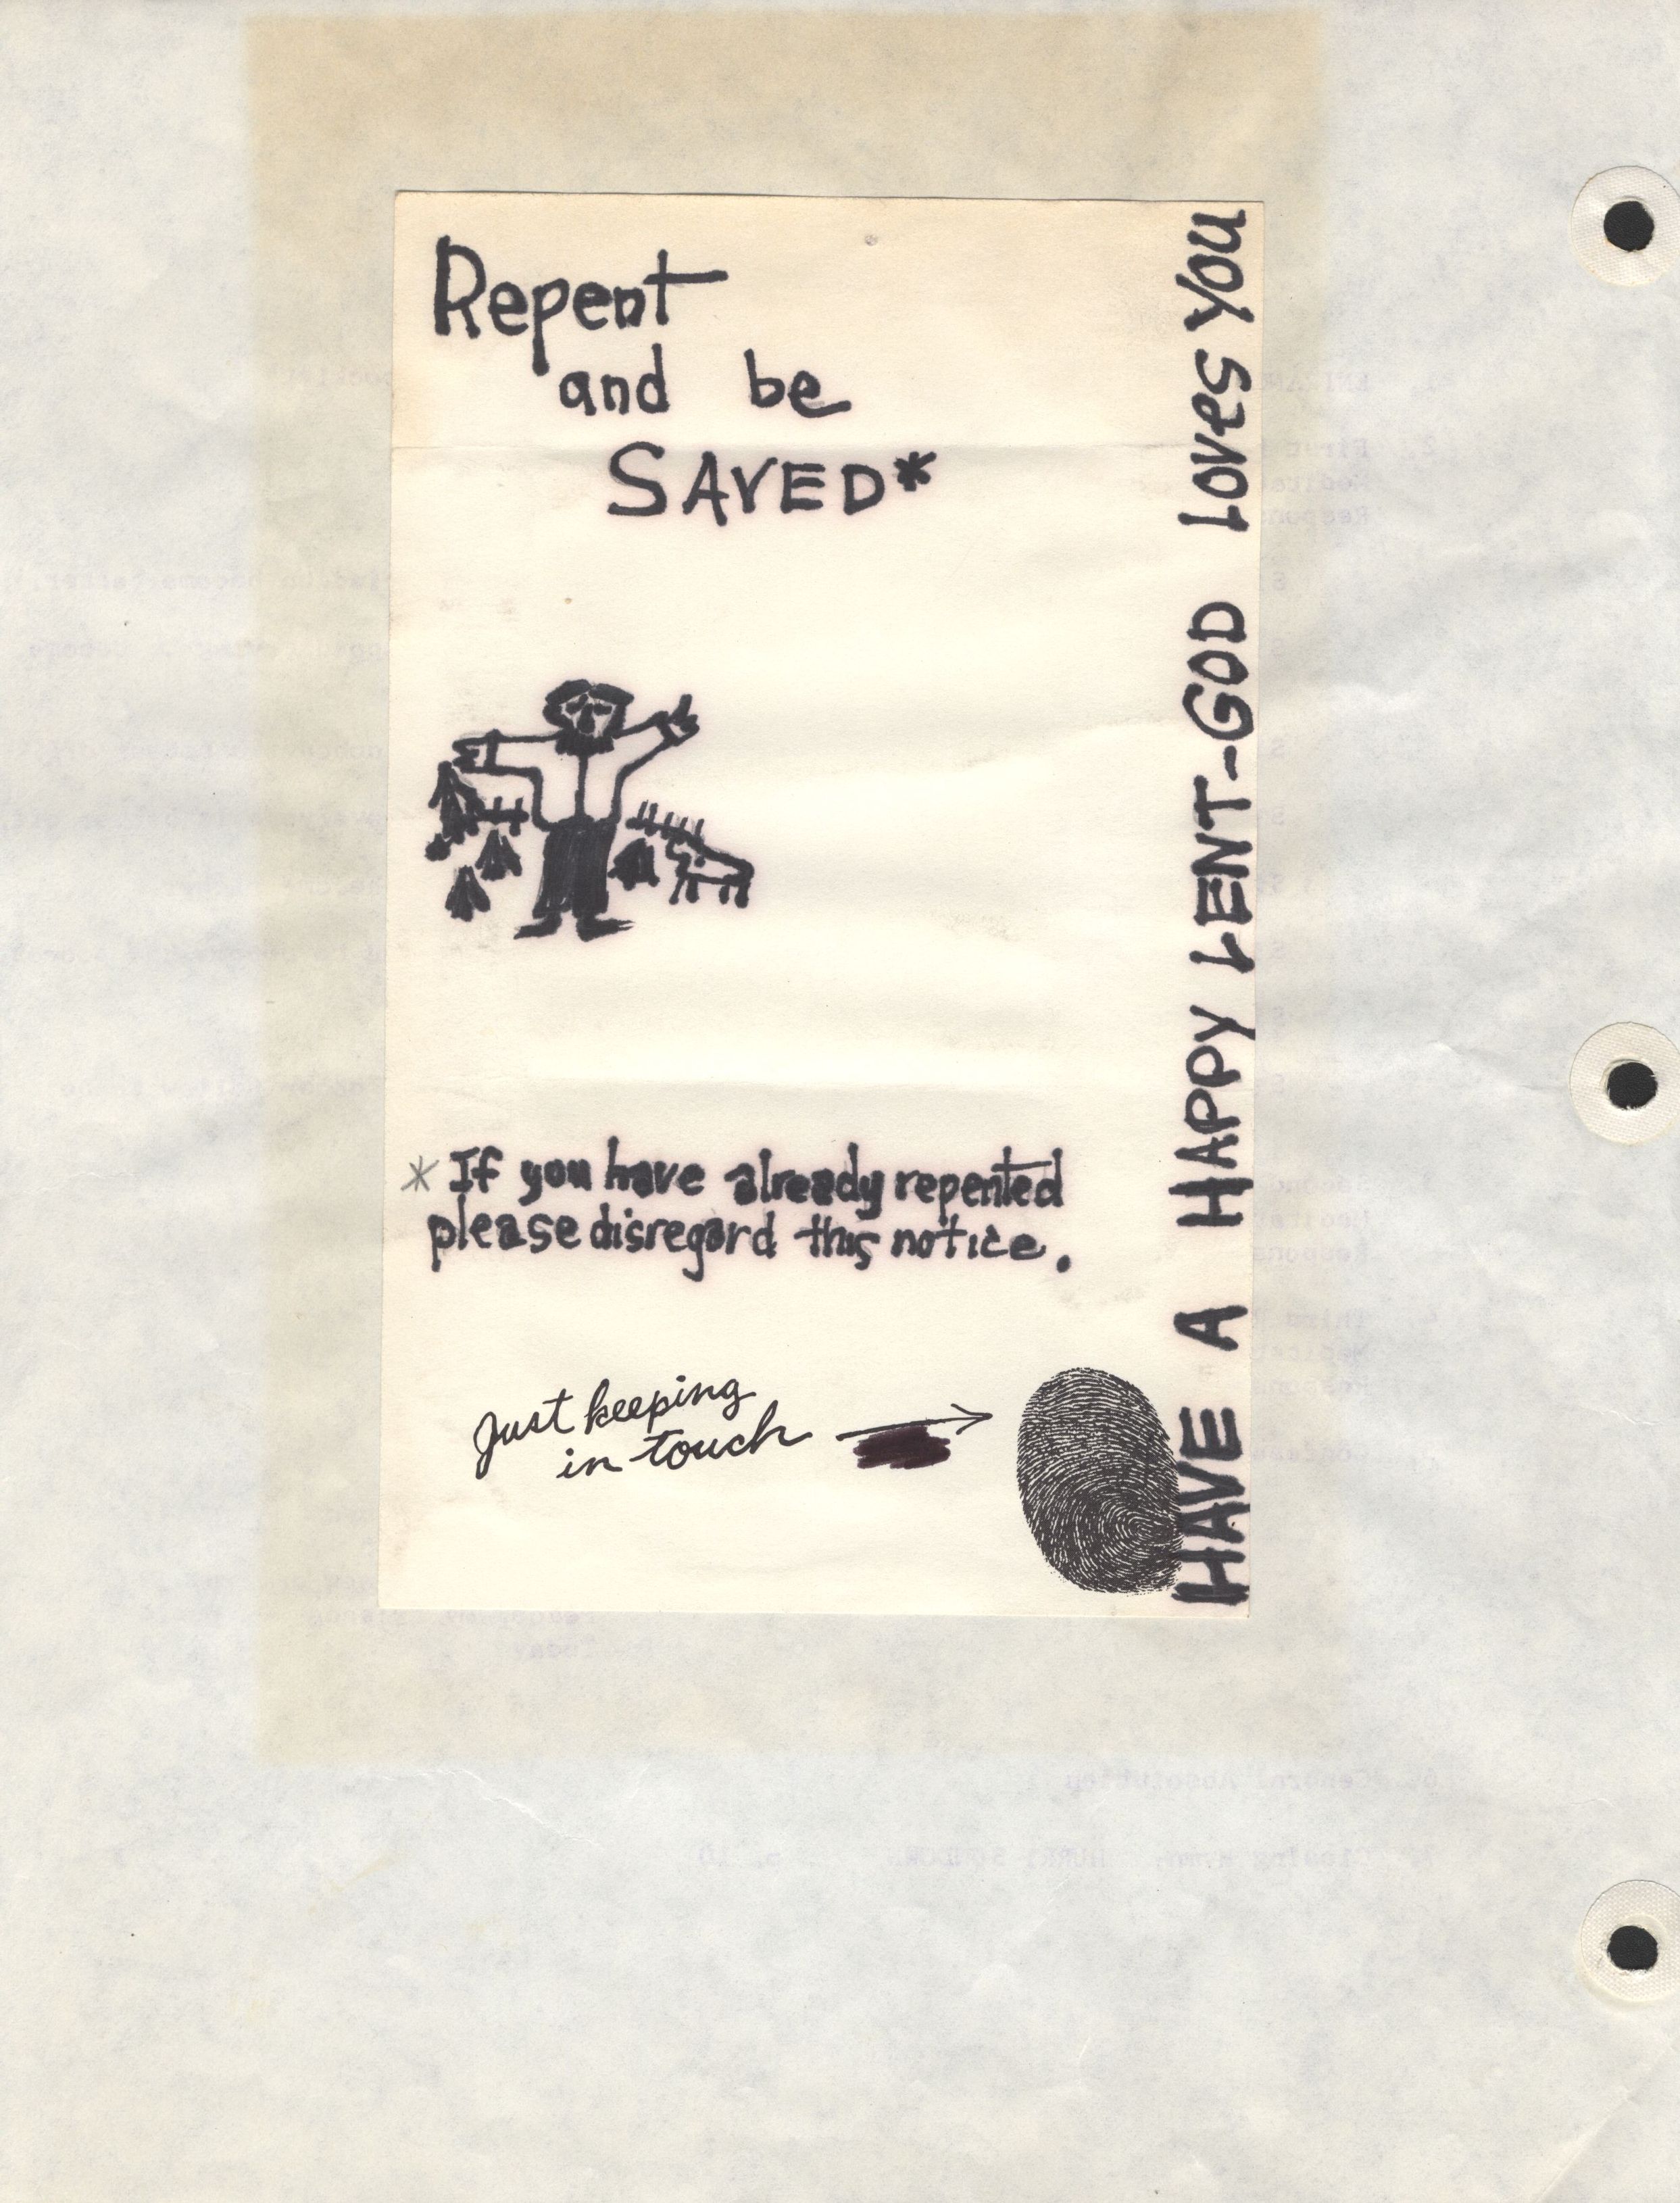 Repent
and be
SAVED*
* If you have already repented
please disregard this notice.
Just keeping
in touch
HAVE A HAPPY LENT-GOD LOVES YOU